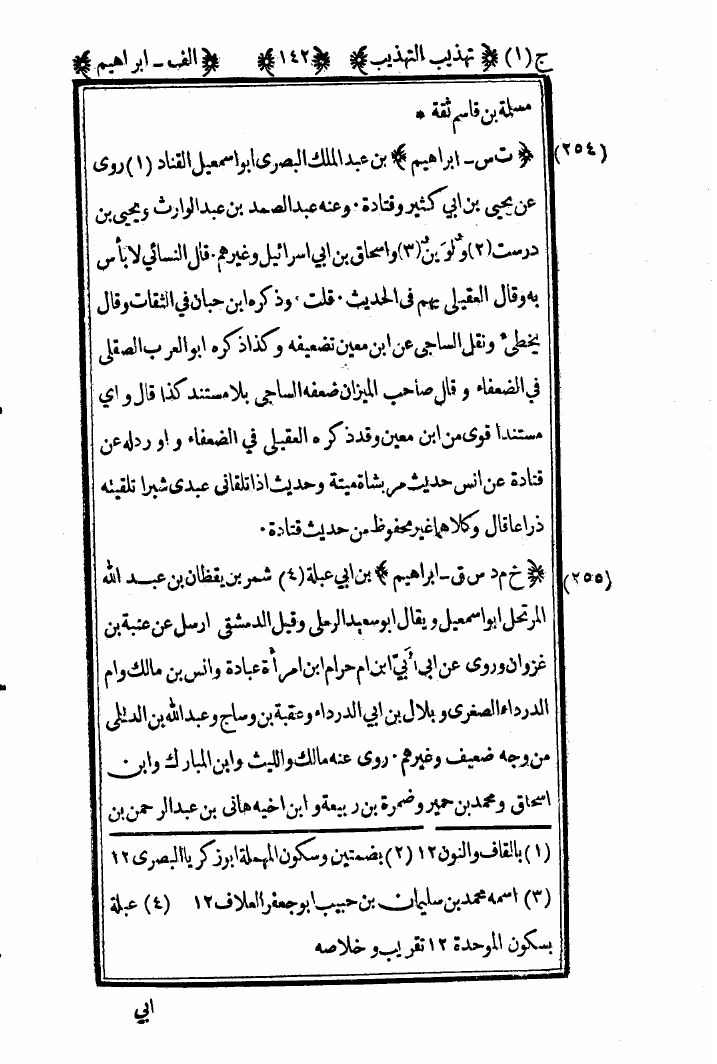 ج (١) ﴿ تهذيب التهذيب ﴾ ﴿ ١٤٢ ﴾ ﴿ الف - ابراهيم ﴾
مسلمة بن قاسم ثقة *
(٢٥٤) ﴿ ت س - ابراهيم ﴾ بن عبد الملك البصرى ابو اسمعيل القناد (١) روى
عن يحيى بن ابي كثير و قتادة · وعنه عبد الصمد بن عبد الوارث ويحيى بن
درست (٢) و لوين (٣) و اسحاق بن ابي اسرائيل وغيرهم · قال النسائي لا بأس
به وقال العقيلى يهم فى الحديث · قلت · وذكره ابن حبان في الثقات وقال
يخطئ و نقل الساجى عن ابن معين تضعيفه و كذا ذكره ابو العرب الصقلى
في الضعفاء و قال صاحب الميزان ضعفه الساجى بلا مستند كذا قال و اي
مستندا قوى من ابن معين وقد ذكره العقيلى في الضعفاء و او ردله عن
قتادة عن انس حديث مر بشاة ميتة وحديث اذا تلقانى عبدى شبرا تلقيته
ذراعا قال وكلاهما غير محفوظ من حديث قتادة ·
(٢٥٥) ﴿ خ م د س ق - ابراهيم ﴾ بن ابي عبلة (٤) شمر بن يقظان بن عبد الله
المرتحل ابو اسمعيل ويقال ابو سعيد الرملى وقيل الدمشقى ارسل عن عتبة بن
غزوان وروى عن ابى اُبَيّ ابن ام حرام ابن امرأة عبادة وانس بن مالك وام
الدرداء الصغرى و بلال بن ابي الدرداء وعقبة بن وساج وعبد الله بن الديلى
من وجه ضعيف وغيرهم · روى عنه مالك والليث وابن المبارك وابن
اسحاق و محمد بن حمير وضمرة بن ربيعة و ابن اخيه هانى بن عبد الرحمن بن
(١) بالقاف والنون ١٢ (٢) بضمتين وسكون المهملة ابو زكريا البصرى ١٢
(٣) اسمه محمد بن سليمان بن حبيب ابو جعفر العلاف ١٢ (٤) عبلة
بسكون الموحدة ١٢ تقريب و خلاصه
ابي